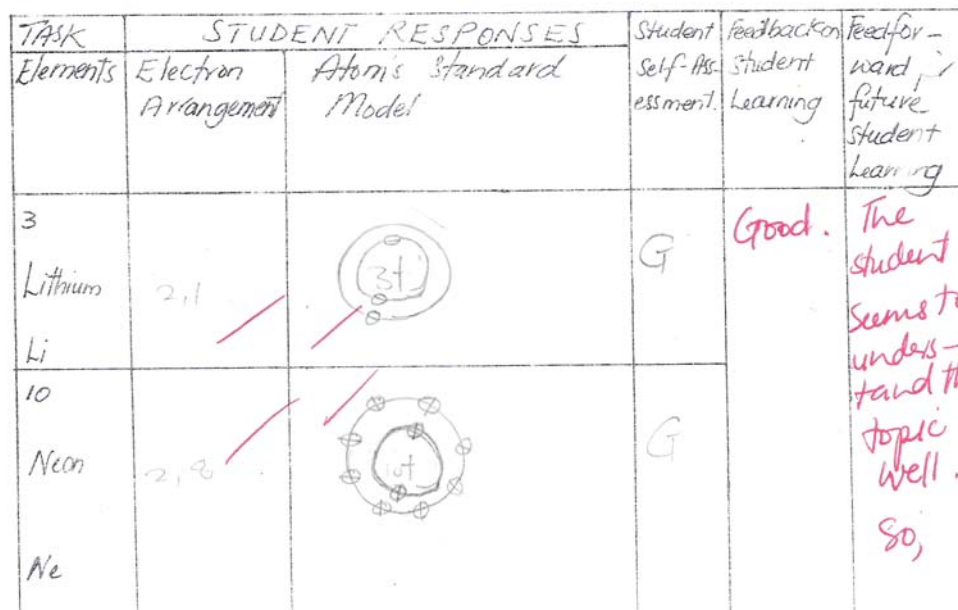 TASK
STUDENT RESPONSES
Student
Self-Ass-
essment.
Feedback on
Student
Learning
Feedfor-
ward
future
student
Learning
Elements
Electron
Arrangement
Atom's Standard
Model
3
Lithium
Li
2,1
3+
G
Good.
The
student
Seems to
unders-
tand th
topic
well.
So,
10
Neon
Ne
2,8
10+
G